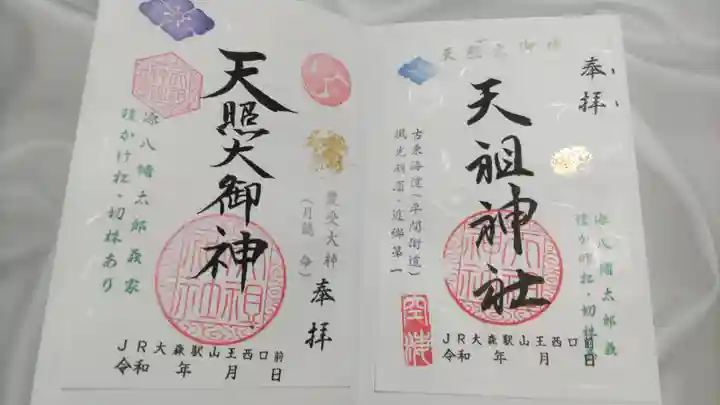 天照大御神
奉拝
源八幡太郎義家
鎧かけ松・切株あり
豊受大神
JR大森駅山王西口前
令和 年 月 日
天照大御神
奉拝
天祖神社
古東海道(平間街道)
風光明眉・近郷第一
源八幡太郎義
鎧かけ松・切株
JR大森駅山王西口前
令和 年 月 日